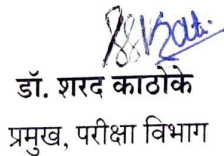 डॉ. शरद काठोके
प्रमुख, परीक्षा विभाग